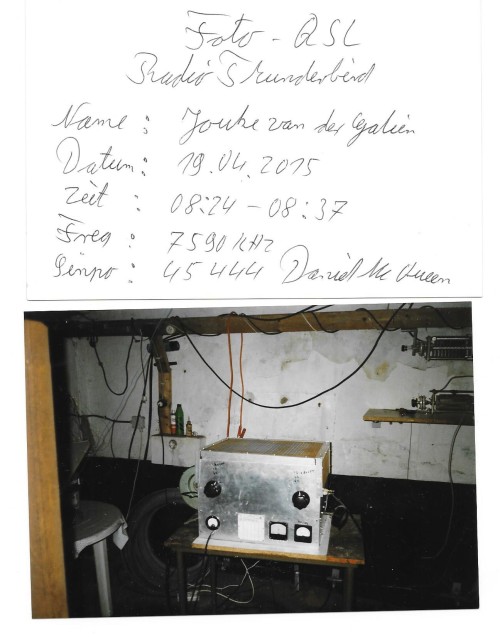 Foto - QSL
Radio Thunderbird
Name : Jouke van der Galiën
Datum : 19.04.2015
Zeit : 08:24 - 08:37
Freq : 7590 kHz
Sinpo : 45444 Daniel Mc Queen